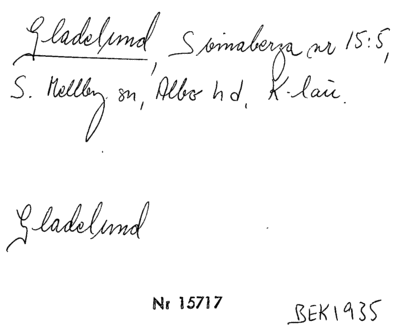 Gladelund, Svinaberga nr 15:5,
S. Mellby sn, Albo hd, K-län.
Gladelund
Nr 15717
BEK 1935